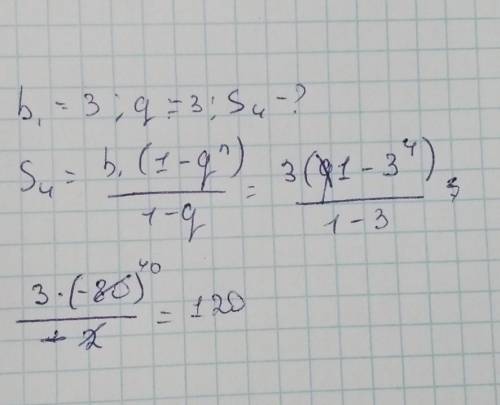 b₁ = 3 ; q = 3 ; S₄ - ?
S₄ = b₁ (1 - qⁿ) / 1 - q = 3 (1 - 3⁴) / 1 - 3 ;
3 · (-80)⁴⁰ / - 2 = 120